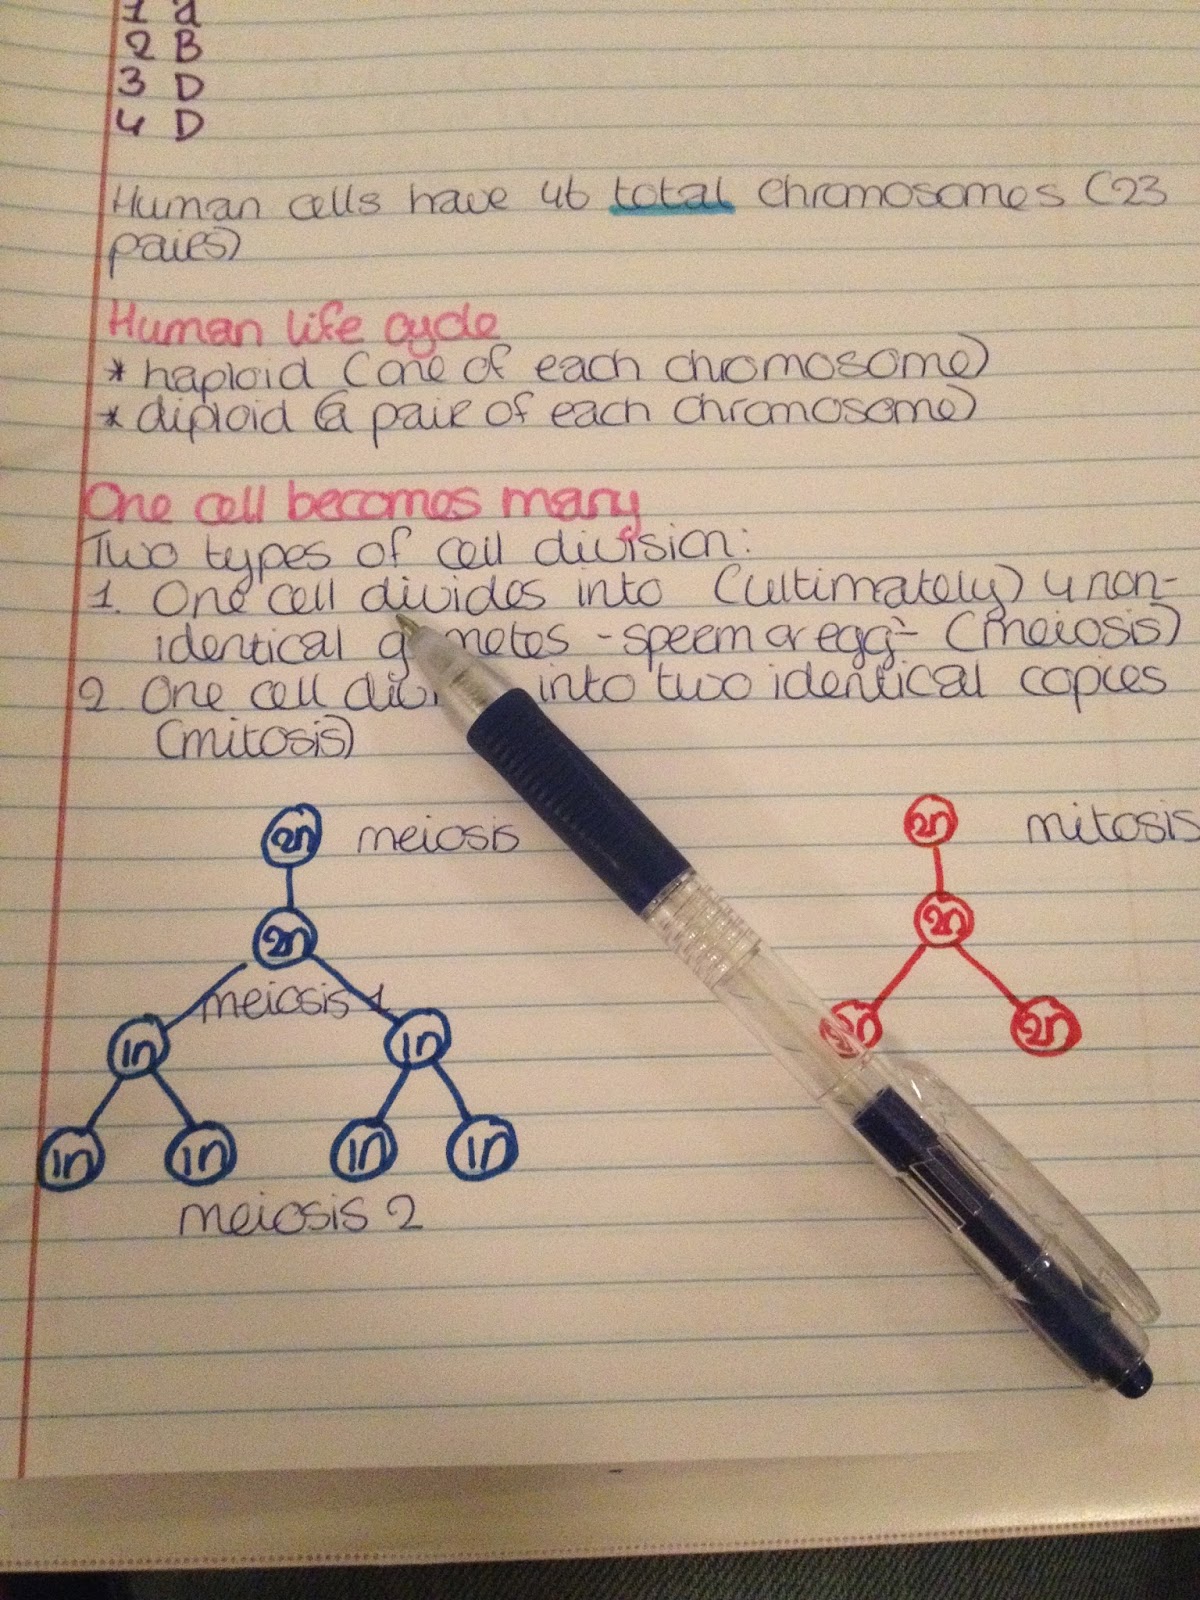 1 a
2 B
3 D
4 D
Human cells have 46 total chromosomes (23
pairs)
Human life cycle
* haploid (one of each chromosome)
* diploid (a pair of each chromosome)
One cell becomes many
Two types of cell division:
1. One cell divides into (ultimately) 4 non-
identical g metes - speem or egg - (meiosis)
2. One cell divi into two identical copies
(mitosis)
2n meiosis
2n mitosis
2n
2n
meiosis 1
1n 1n
2n 2n
1n 1n 1n 1n
meiosis 2